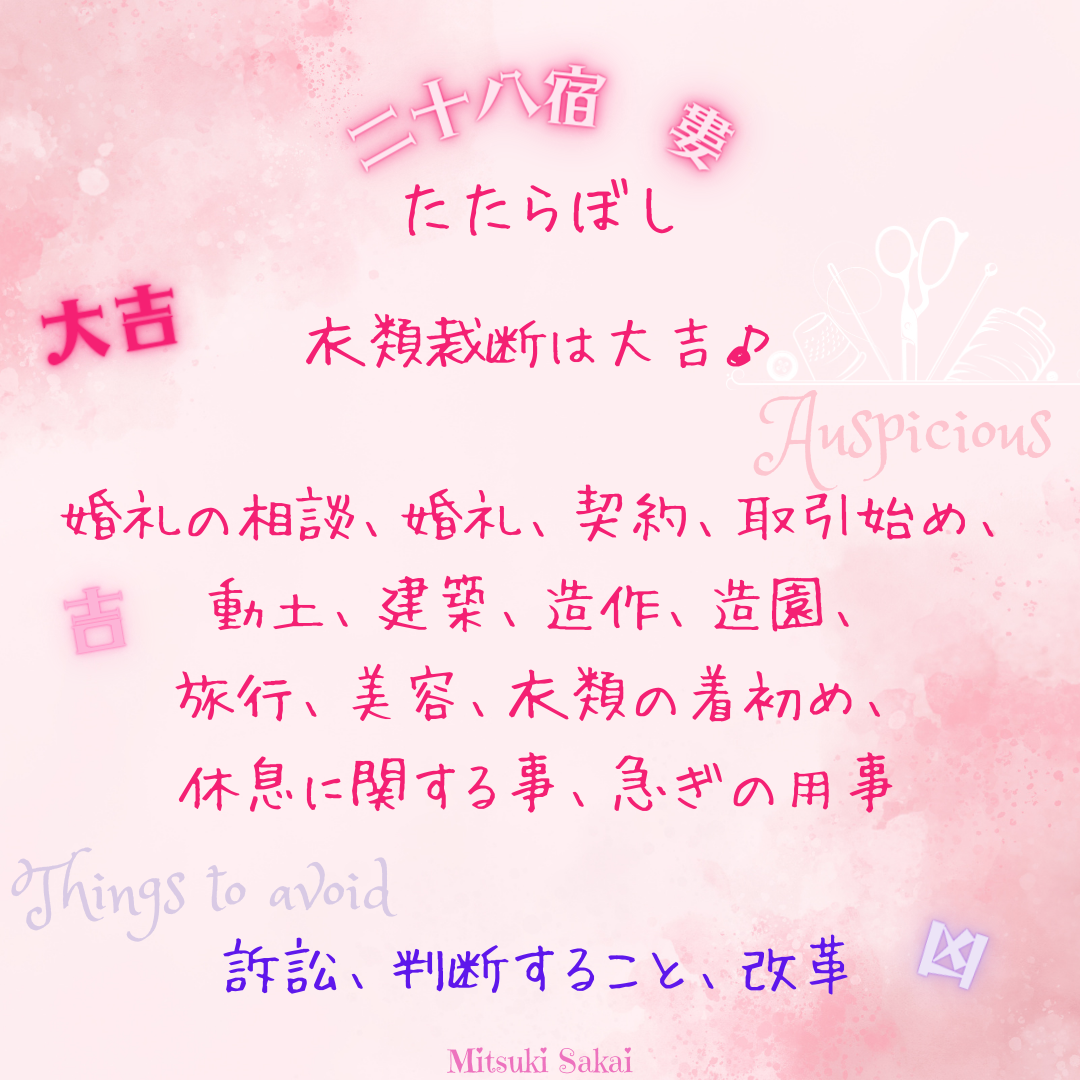 二十八宿 婁
たたらぼし
大吉
衣類裁断は大吉♪
Auspicious
婚礼の相談、婚礼、契約、取引始め、
動土、建築、造作、造園、
吉
旅行、美容、衣類の着初め、
休息に関する事、急ぎの用事
Things to avoid
訴訟、判断すること、改革
凶
Mitsuki Sakai